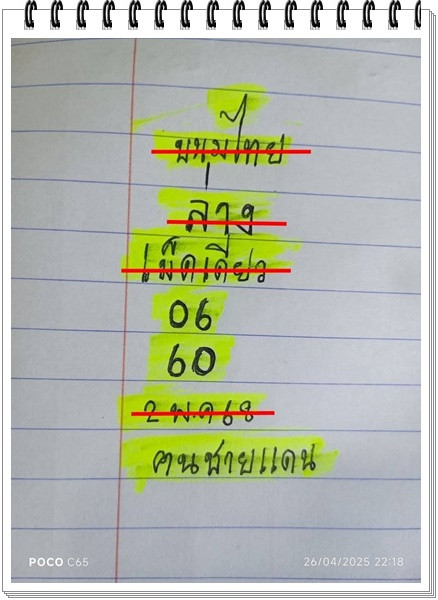 ขนมไทย
ล่าง
เม็ดเดียว
06
60
2 พ.ค 68
คนชายแดน
POCO C65
26/04/2025 22:18